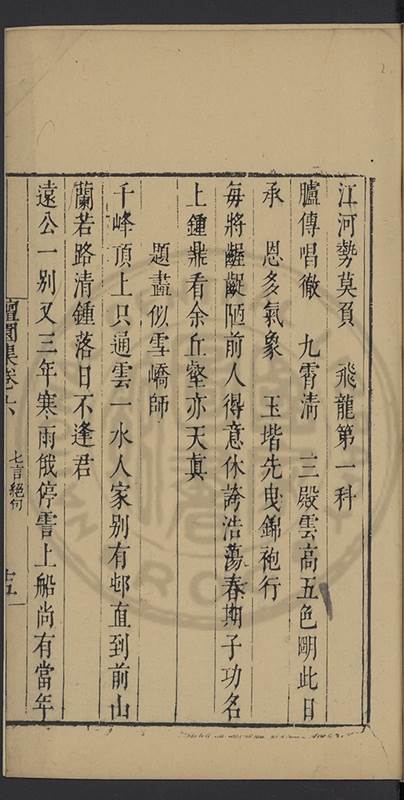 江河勢莫負　飛龍第一科
臚傳唱徹　九霄清　三殿雲高五色明此日
承　恩多氣象　玉堦先曳錦袍行
每將齷齪陋前人得意休誇浩蕩春期子功名
上鍾鼎看余丘壑亦天真
題畫似雪嶠師
千峰頂上只通雲一水人家別有邨直到前山
蘭若路清鍾落日不逢君
遠公一別又三年寒雨俄停霅上船尚有當年
集卷六
七言絕句